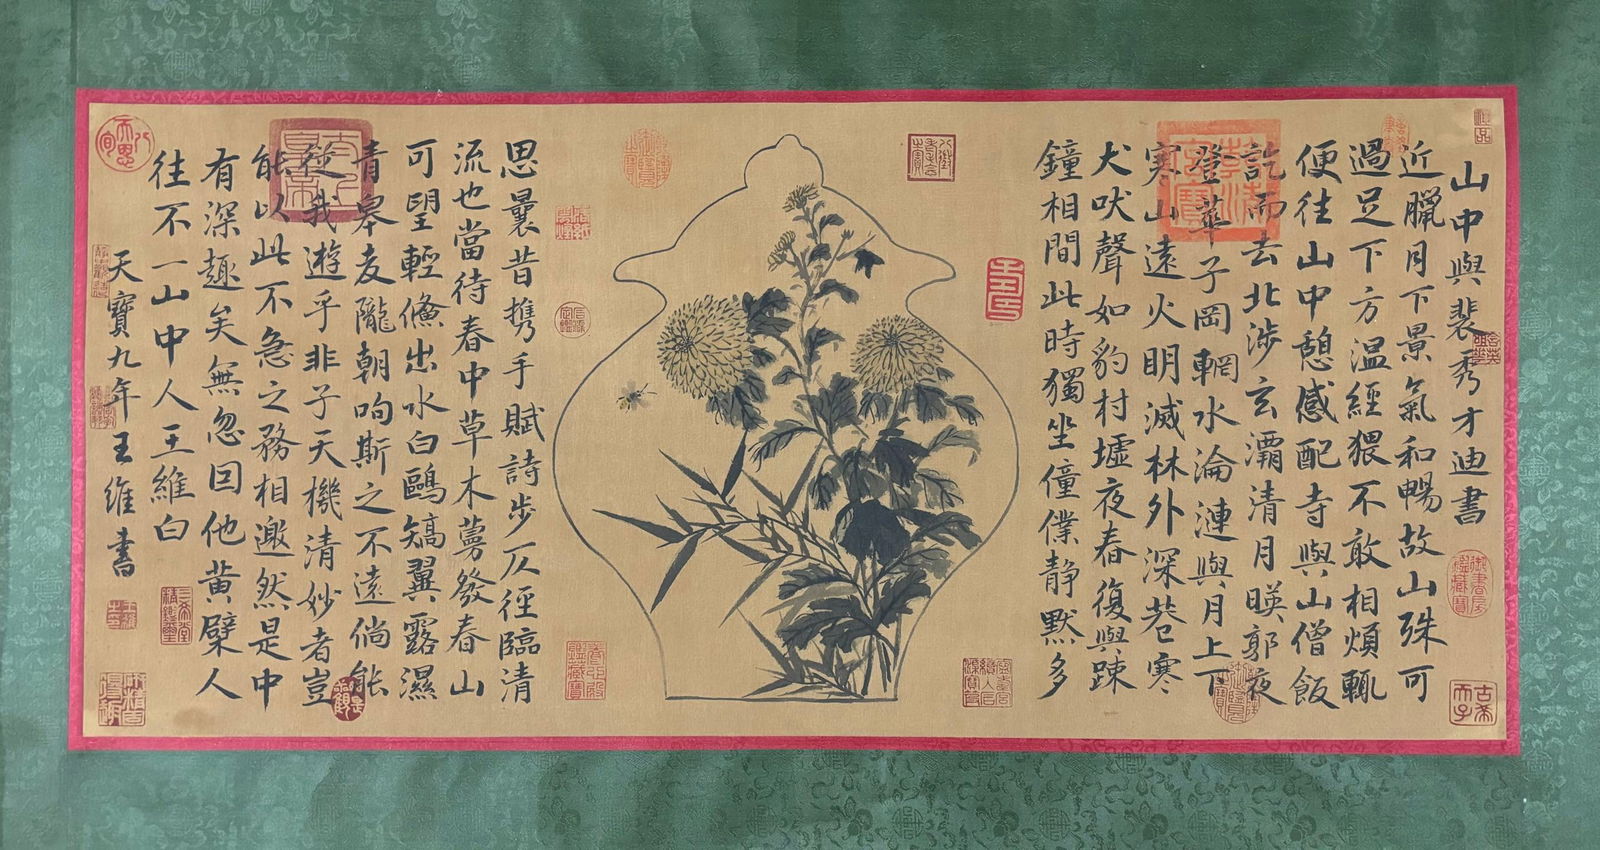 山中與裴秀才迪書
近臘月下景氣和暢故山殊可
過足下方溫經猥不敢相煩輒
便往山中憩感配寺與山僧飯
訖而去北涉玄灞清月暎郭夜
登華子岡輞水淪漣與月上下
寒山遠火明滅林外深巷寒
犬吠聲如豹村墟夜舂復與踈
鐘相間此時獨坐僮僕靜默多
思曩昔攜手賦詩步仄徑臨清
流也當待春中草木蔓發春山
可望輕鯈出水白鷗矯翼露濕
青皋麦隴朝呴斯之不遠倘能
從我遊乎非子天機清妙者豈
能以此不急之務相邀然是中
有深趣矣無忽因他黃檗人
往不一山中人王維白
天寶九年王維書